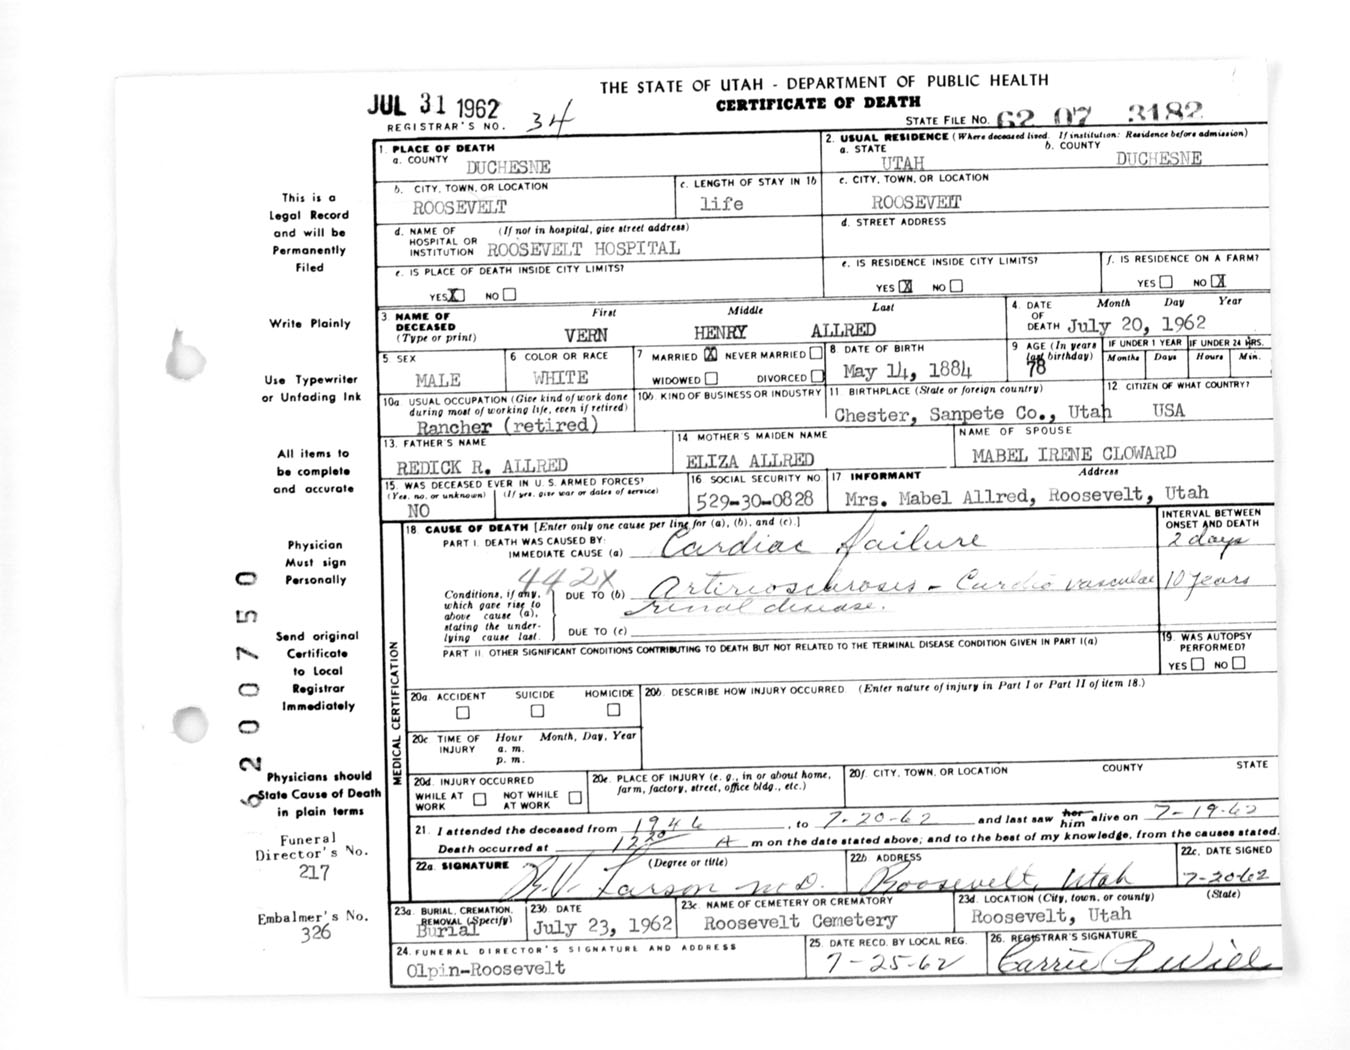 THE STATE OF UTAH - DEPARTMENT OF PUBLIC HEALTH
CERTIFICATE OF DEATH
JUL 31 1962
REGISTRAR'S NO. 34
STATE FILE NO. 62 07 3182
This is a
Legal Record
and will be
Permanently
Filed
Write Plainly
Use Typewriter
or Unfading Ink
All items to
be complete
and accurate
Physician
Must sign
Personally
Send original
Certificate
to Local
Registrar
Immediately
Physicians should
State Cause of Death
in plain terms
Funeral
Director's No.
217
Embalmer's No.
326
6200750
1. PLACE OF DEATH
a. COUNTY DUCHESNE
2. USUAL RESIDENCE (Where deceased lived. If institution: Residence before admission)
a. STATE UTAH b. COUNTY DUCHESNE
b. CITY, TOWN, OR LOCATION
ROOSEVELT
c. LENGTH OF STAY IN 1b
life
c. CITY, TOWN, OR LOCATION
ROOSEVELT
d. NAME OF HOSPITAL OR INSTITUTION (If not in hospital, give street address)
ROOSEVELT HOSPITAL
d. STREET ADDRESS
e. IS PLACE OF DEATH INSIDE CITY LIMITS?
YES X NO
e. IS RESIDENCE INSIDE CITY LIMITS?
YES X NO
f. IS RESIDENCE ON A FARM?
YES NO X
3. NAME OF DECEASED (Type or print)
First Middle Last
VERN HENRY ALLRED
4. DATE OF DEATH Month Day Year
July 20, 1962
5 SEX
MALE
6 COLOR OR RACE
WHITE
7 MARRIED X NEVER MARRIED
WIDOWED DIVORCED
8 DATE OF BIRTH
May 14, 1884
9 AGE (In years last birthday)
78
IF UNDER 1 YEAR
Months Days
IF UNDER 24 HRS.
Hours Min.
10a. USUAL OCCUPATION (Give kind of work done during most of working life, even if retired)
Rancher (retired)
10b KIND OF BUSINESS OR INDUSTRY
11 BIRTHPLACE (State or foreign country)
Chester, Sanpete Co., Utah
12 CITIZEN OF WHAT COUNTRY?
USA
13. FATHER'S NAME
REDICK R. ALLRED
14 MOTHER'S MAIDEN NAME
ELIZA ALLRED
NAME OF SPOUSE
MABEL IRENE CLOWARD
15. WAS DECEASED EVER IN U. S. ARMED FORCES?
(Yes, no, or unknown) (If yes, give war or dates of service)
NO
16 SOCIAL SECURITY NO.
529-30-0828
17 INFORMANT Address
Mrs. Mabel Allred, Roosevelt, Utah
MEDICAL CERTIFICATION
18 CAUSE OF DEATH [Enter only one cause per line for (a), (b), and (c).]
PART I. DEATH WAS CAUSED BY:
IMMEDIATE CAUSE (a) Cardiac failure
INTERVAL BETWEEN
ONSET AND DEATH
2 days
442X
Conditions, if any,
which gave rise to
above cause (a),
stating the under-
lying cause last.
DUE TO (b) Arteriosclerosis - Cardio vascular 10 years
renal disease.
DUE TO (c)
PART II. OTHER SIGNIFICANT CONDITIONS CONTRIBUTING TO DEATH BUT NOT RELATED TO THE TERMINAL DISEASE CONDITION GIVEN IN PART I(a)
19. WAS AUTOPSY
PERFORMED?
YES NO
20a. ACCIDENT SUICIDE HOMICIDE
20b. DESCRIBE HOW INJURY OCCURRED (Enter nature of injury in Part I or Part II of item 18.)
20c TIME OF INJURY Hour Month, Day, Year
a. m.
p. m.
20d. INJURY OCCURRED
WHILE AT WORK NOT WHILE AT WORK
20e. PLACE OF INJURY (e. g., in or about home, farm, factory, street, office bldg., etc.)
20f. CITY, TOWN, OR LOCATION COUNTY STATE
21. I attended the deceased from 1946, to 7-20-62 and last saw her him alive on 7-19-62
Death occurred at 1220 A m on the date stated above; and to the best of my knowledge, from the causes stated.
22a. SIGNATURE (Degree or title)
Larson M.D.
22b ADDRESS
Roosevelt, Utah
22c. DATE SIGNED
7-20-62
23a. BURIAL, CREMATION, REMOVAL (Specify)
Burial
23b. DATE
July 23, 1962
23c NAME OF CEMETERY OR CREMATORY
Roosevelt Cemetery
23d. LOCATION (City, town, or county) (State)
Roosevelt, Utah
24. FUNERAL DIRECTOR'S SIGNATURE AND ADDRESS
Olpin-Roosevelt
25. DATE RECD. BY LOCAL REG.
7-25-62
26. REGISTRAR'S SIGNATURE
Carrie P. Will